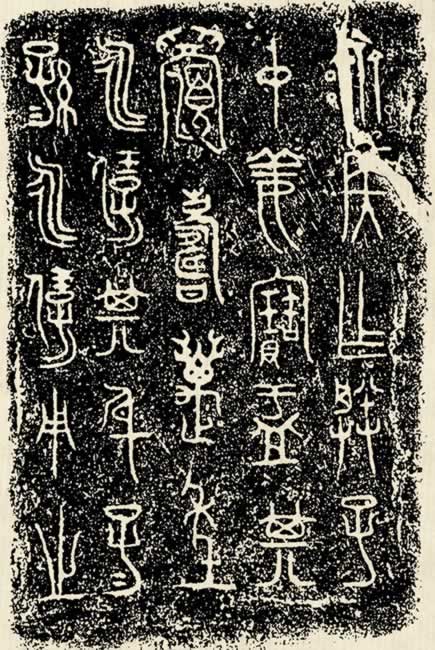 齊侯乍朕子
中姜寶盂其
眉壽萬年
永保其身子
孫永保用之